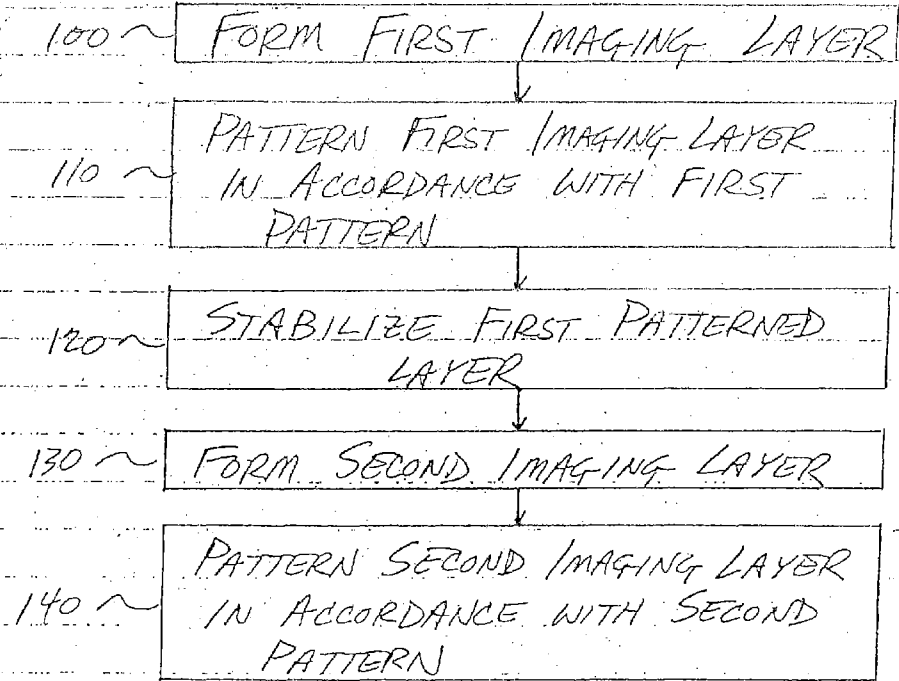 100 FORM FIRST IMAGING LAYER
PATTERN FIRST IMAGING LAYER
110 IN ACCORDANCE WITH FIRST
PATTERN
STABILIZE FIRST PATTERNED
120 LAYER
130 FORM SECOND IMAGING LAYER
PATTERN SECOND IMAGING LAYER
140 IN ACCORDANCE WITH SECOND
PATTERN